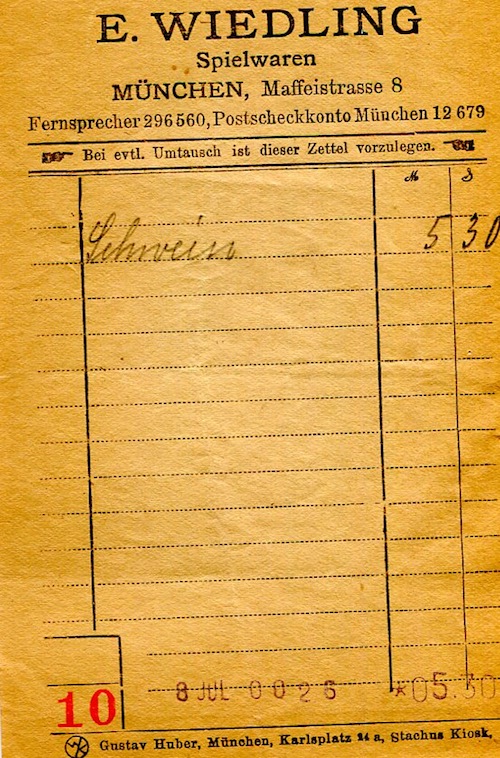 E. WIEDLING
Spielwaren
MÜNCHEN, Maffeistrasse 8
Fernsprecher 296560, Postscheckkonto München 12 679
Bei evtl. Umtausch ist dieser Zettel vorzulegen.
M ₰
Schwein 5 30
10 8 JUL 0026 *05.30
Gustav Huber, München, Karlsplatz 24 a, Stachus Kiosk.